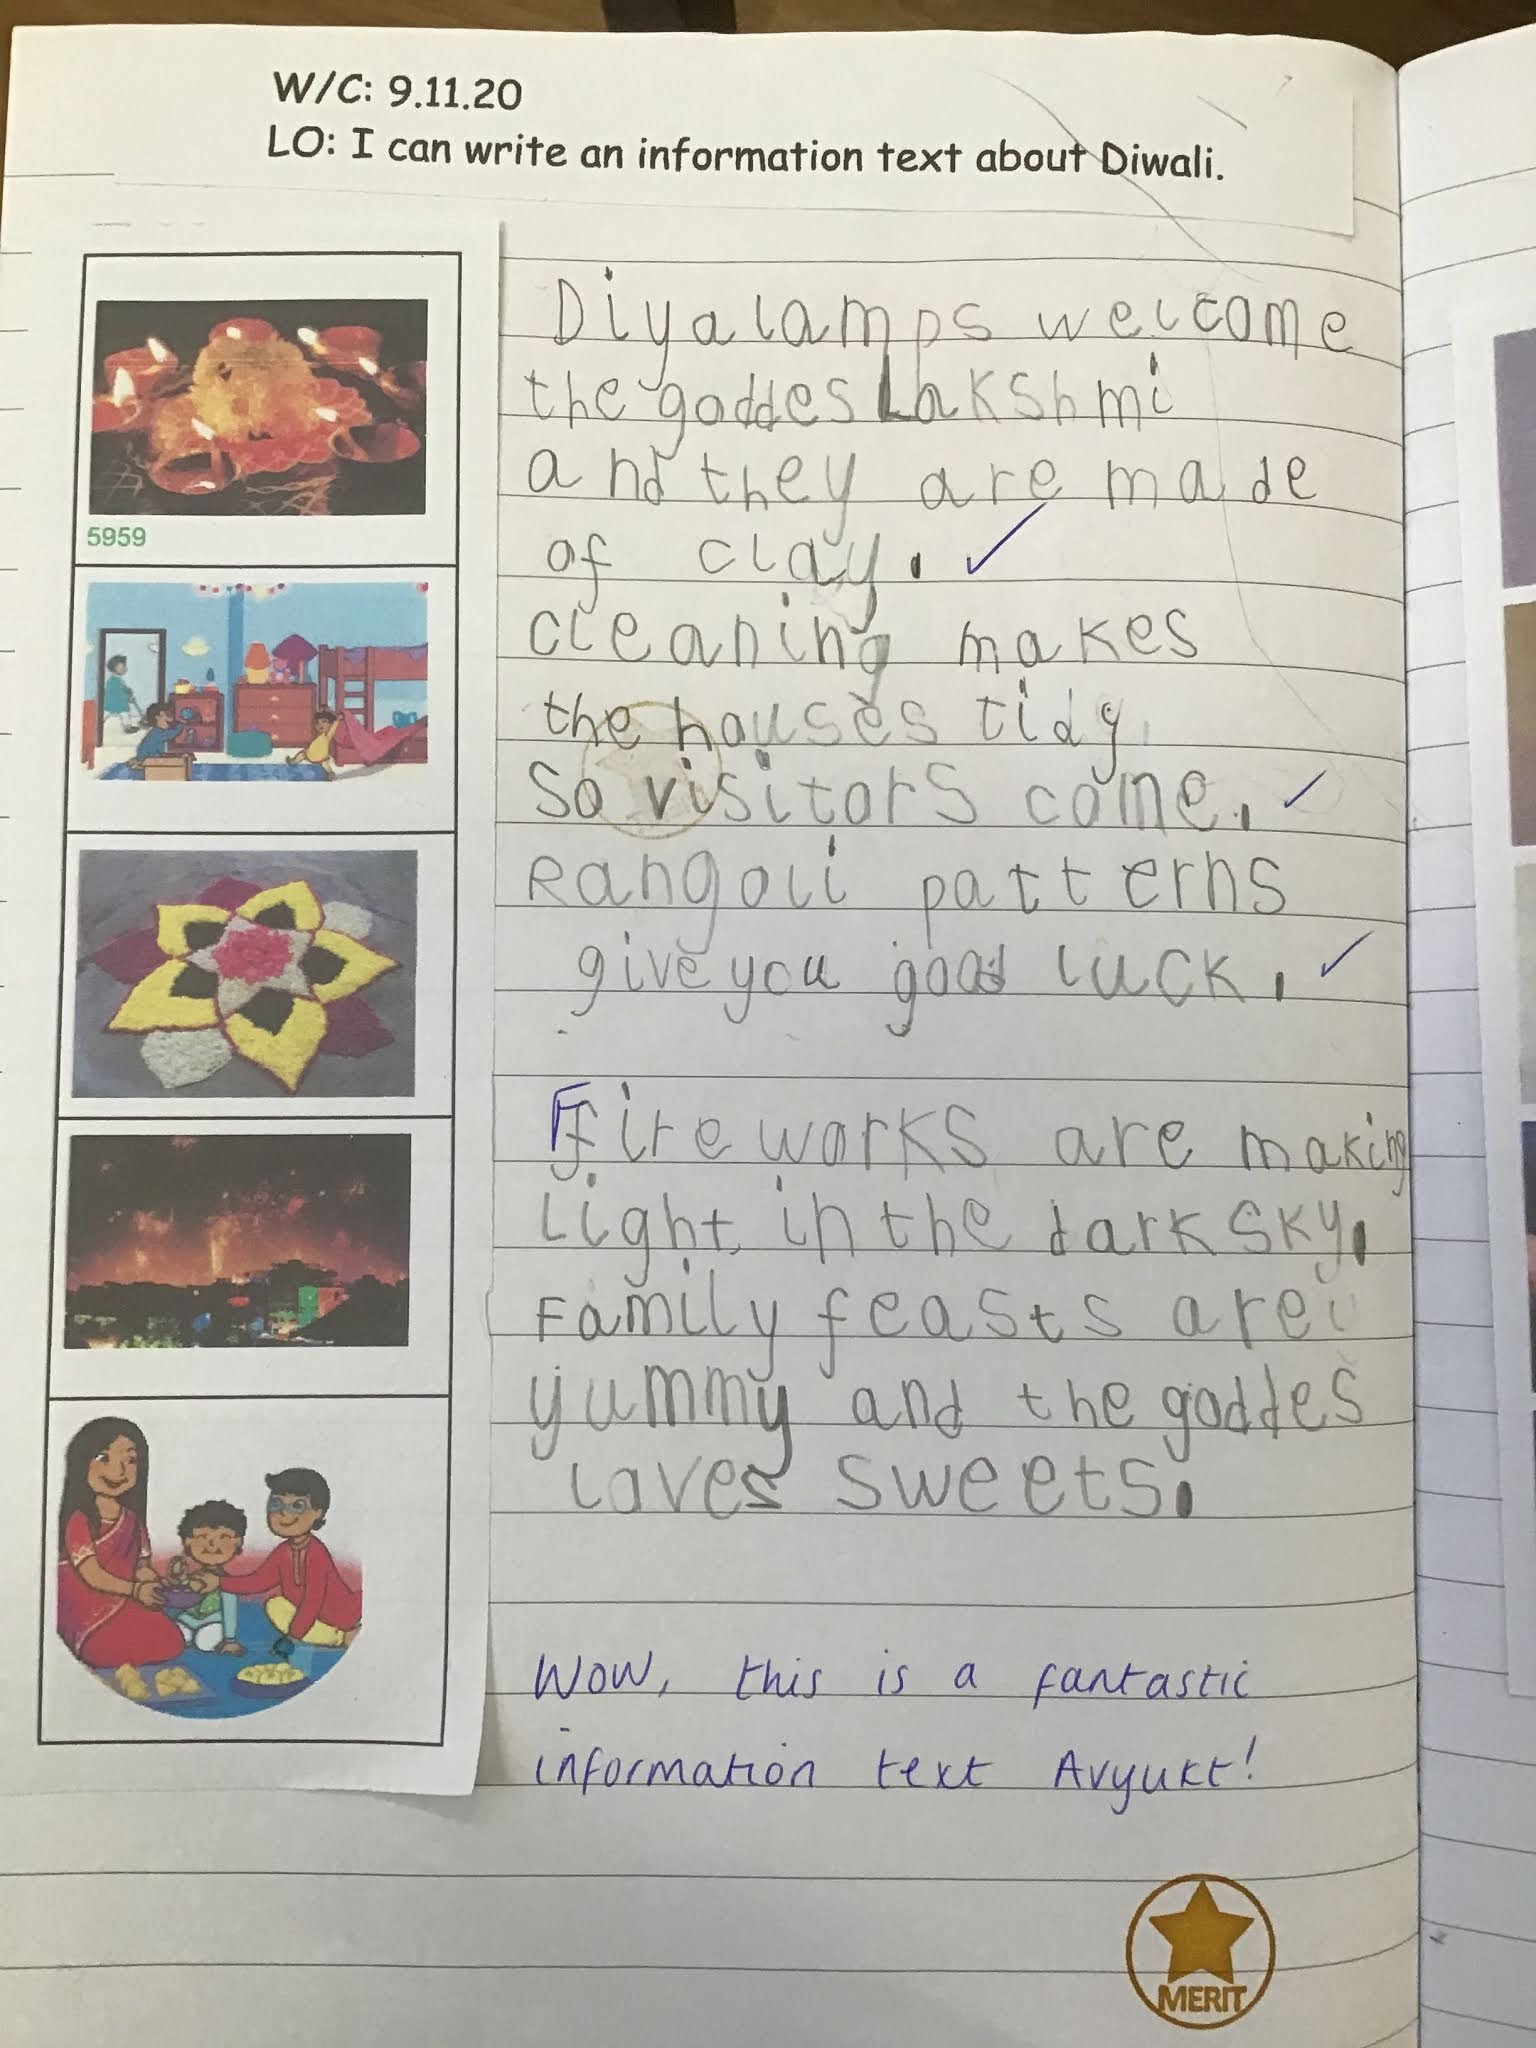 W/C: 9.11.20
LO: I can write an information text about Diwali.
5959
Diya lamps welcome
the goddes Lakshmi
and they are made
of clay.
cleaning makes
the houses tidy
So visitors come.
Rangoli patterns
give you good luck.
Fireworks are making
light in the dark sky.
Family feasts are
yummy and the goddes
loves sweets.
Wow, this is a fantastic
information text Avyukt!
MERIT